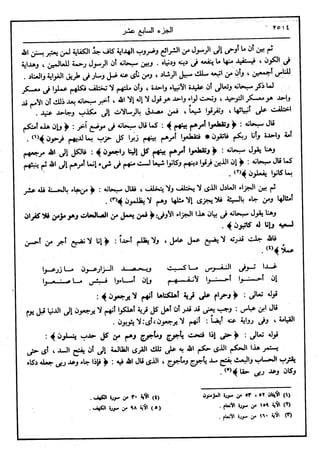 ٢٥١٤ الجزء السابع عشر
ثم بين أن ما أوحى إلى الرسول من الشرائع وضروب الهداية كاف جدُّ الكفاية لمن يعتبر بسنن الله
في الكون، فيستفيد منها ما ينفعه في دينه ودنياه. وبين سبحانه أن الرسول رحمة للعالمين، وهداية
للناس أجمعين، وأن من اتبعه سلك سبيل الرشاد، ومن نأى عنه ضل وسار في طريق الغواية والعناد.
لما ذكر سبحانه وتعالى أن عقيدة الأنبياء واحدة، وأن ملتهم لا تختلف فكلهم عملوا في معسكر
واحد هو معسكر التوحيد، وتحت لواء واحد هو قول لا إله إلا الله، أخبر سبحانه بعد ذلك أن الأمم قد
اختلفت على أنبيائها، وتفرقوا شيعاً، فمن مصدق بالرسالات إلى مكذب وجاحد عنيد.
قال سبحانه: ﴿ وتقطعوا أمرهم بينهم ﴾: كما قال سبحانه في موضع آخر: ﴿ وإن هذه أمتكم
أمة واحدة وأنا ربكم فاتقون * فتقطعوا أمرهم بينهم زبرا كل حزب بما لديهم فرحون ﴾(١).
وهنا يقول سبحانه: ﴿ وتقطعوا أمرهم بينهم كل إلينا راجعون ﴾: فالكل إلى الله مرجعهم
كما قال سبحانه: ﴿ إن الذين فرقوا دينهم وكانوا شيعا لست منهم في شيء إنما أمرهم إلى الله ثم ينبئهم
بما كانوا يفعلون ﴾(٢).
ثم بين الجزاء العادل الذي لا يختلف ولا يتخلف، فقال سبحانه: ﴿ من جاء بالحسنة فله عشر
أمثالها ومن جاء بالسيئة فلا يجزى إلا مثلها وهم لا يظلمون ﴾(٣).
وهنا يقول سبحانه في بيان هذا الجزاء الأوفى: ﴿ فمن يعمل من الصالحات وهو مؤمن فلا كفران
لسعيه وإنا له كاتبون ﴾.
فالله جلت قدرته لا يضيع عمل عامل، ولا يظلم أحداً: ﴿ إنا لا نضيع أجر من أحسن
عملا ﴾(٤).
غدا توفى النفوس ما كسبت ويحصد الزارعون ما زرعوا
إن أحسنوا أحسنوا لأنفسهم وإن أساءوا فبئس ما صنعوا
قوله تعالى: ﴿ وحرام على قرية أهلكناها أنهم لا يرجعون ﴾:
قال ابن عباس: وجب يعني قد قدر أن أهل كل قرية أهلكوا أنهم لا يرجعون إلى الدنيا قبل يوم
القيامة، وفي رواية عنه أيضاً: أنهم لا يرجعون، أي: لا يتوبون.
قوله تعالى: ﴿ حتى إذا فتحت يأجوج ومأجوج وهم من كل حدب ينسلون ﴾:
يستمر هذا الحكم الذي حكم الله به على تلك القرى الظالمة إلى أن يفتح السد، أي حتى
يقترب الحساب والبعث بفتح سد يأجوج ومأجوج، الذي قال الله فيه: ﴿ فإذا جاء وعد ربي جعله دكاء
وكان وعد ربي حقا ﴾(٥).
(١) الآيتان ٥٢، ٥٣ من سورة المؤمنون
(٢) الآية ١٥٩ من سورة الأنعام.
(٣) الآية ١٦٠ من سورة الأنعام.
(٤) الآية ٣٠ من سورة الكهف.
(٥) الآية ٩٨ من سورة الكهف.